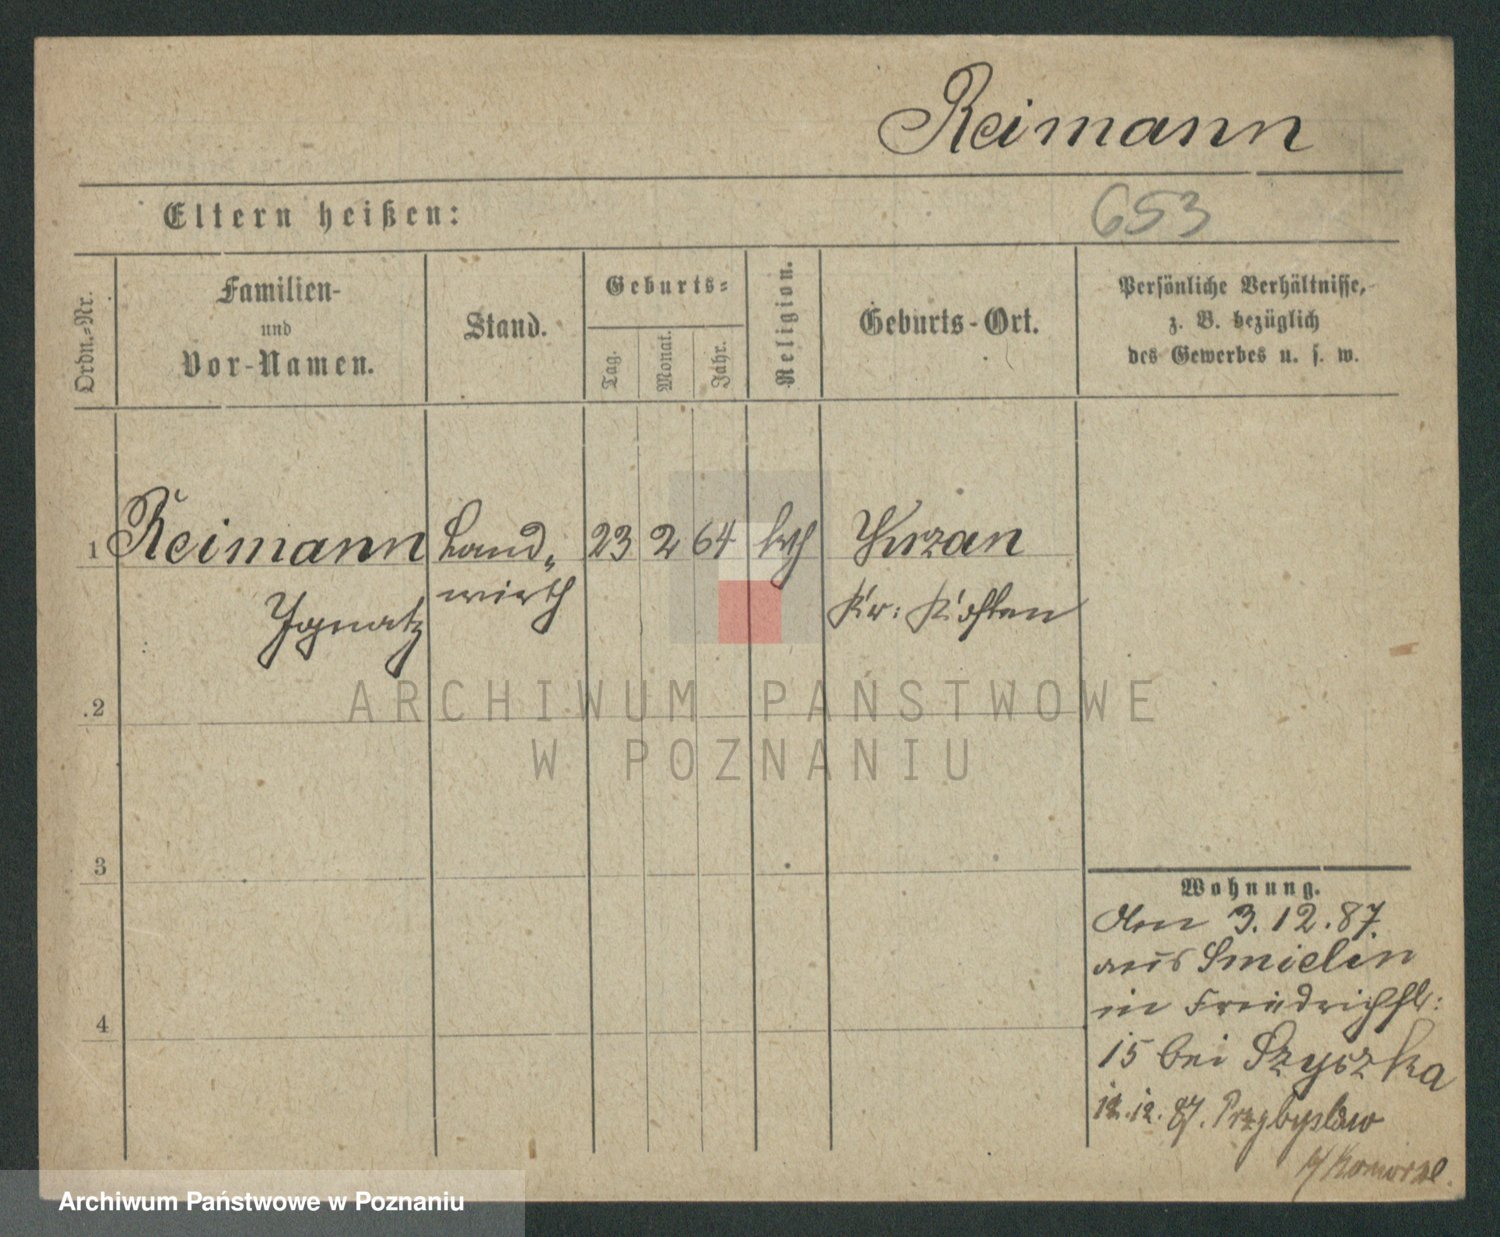 Reimann
Eltern heißen:
653
Ordn.-Nr.
Familien-
und
Vor-Namen.
Stand.
Geburts-
Tag.
Monat.
Jahr.
Religion.
Geburts-Ort.
Persönliche Verhältnisse,
z. B. bezüglich
des Gewerbes u. s. w.
1 Reimann Land- 23 2 64 kth Krzan
Ignatz wirth Kr: Kosten
2
3
4
Wohnung.
den 3.12.87.
aus Smielin
in Friedrichstr:
15 bei Szyszka
12.12.87. Przybyslaw
ARCHIWUM PAŃSTWOWE
W POZNANIU
Archiwum Państwowe w Poznaniu